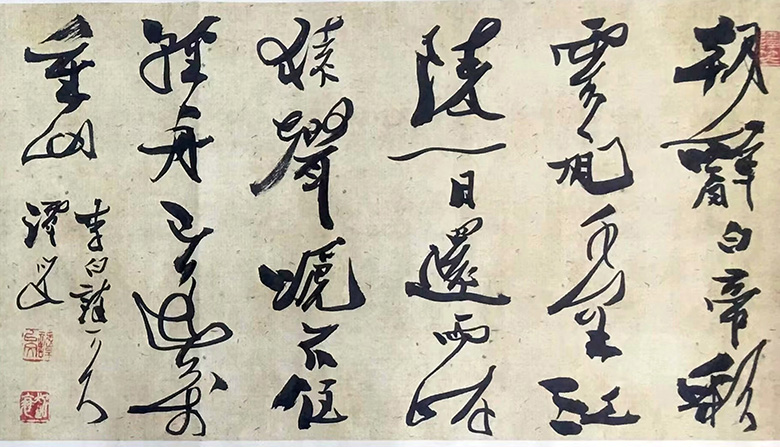 朝辭白帝彩
雲間千里江
陵一日還兩岸
猿聲嗁不住
輕舟已過萬
重山
李白詩一首
譚